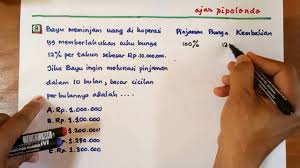 ajar pipolondo
3 Bayu meminjam uang di koperasi
yg memberlakukan suku bunga
12% per tahun sebesar Rp.10.000.000.
Jika Bayu ingin melunasi pinjaman
dalam 10 bulan, besar cicilan
per bulannya adalah ....
A. Rp. 1.000.000
Rp. 1.100.000
1.200.000
E. Rp. 1.300.000
Pinjaman Bunga Kembalian
100% 12